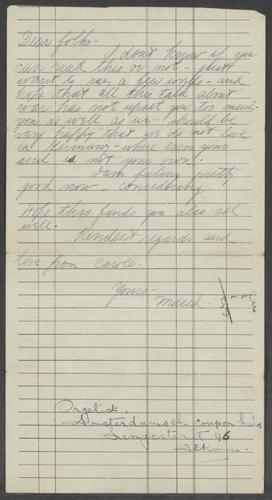 Dear folks -
I don't know if you
can read this or not - just
want to say a few words - and
hope that all this talk about
war has not upset you too much -
you as well as us - should be
very happy that we do not live
in Germany - where even your
soul is not your own!
I am feeling pretty
good now - considering.
Hope this finds you also all
well.
Kindest regards and
love from Carol.
Yours -
Amsterdamsch coupon huis
46